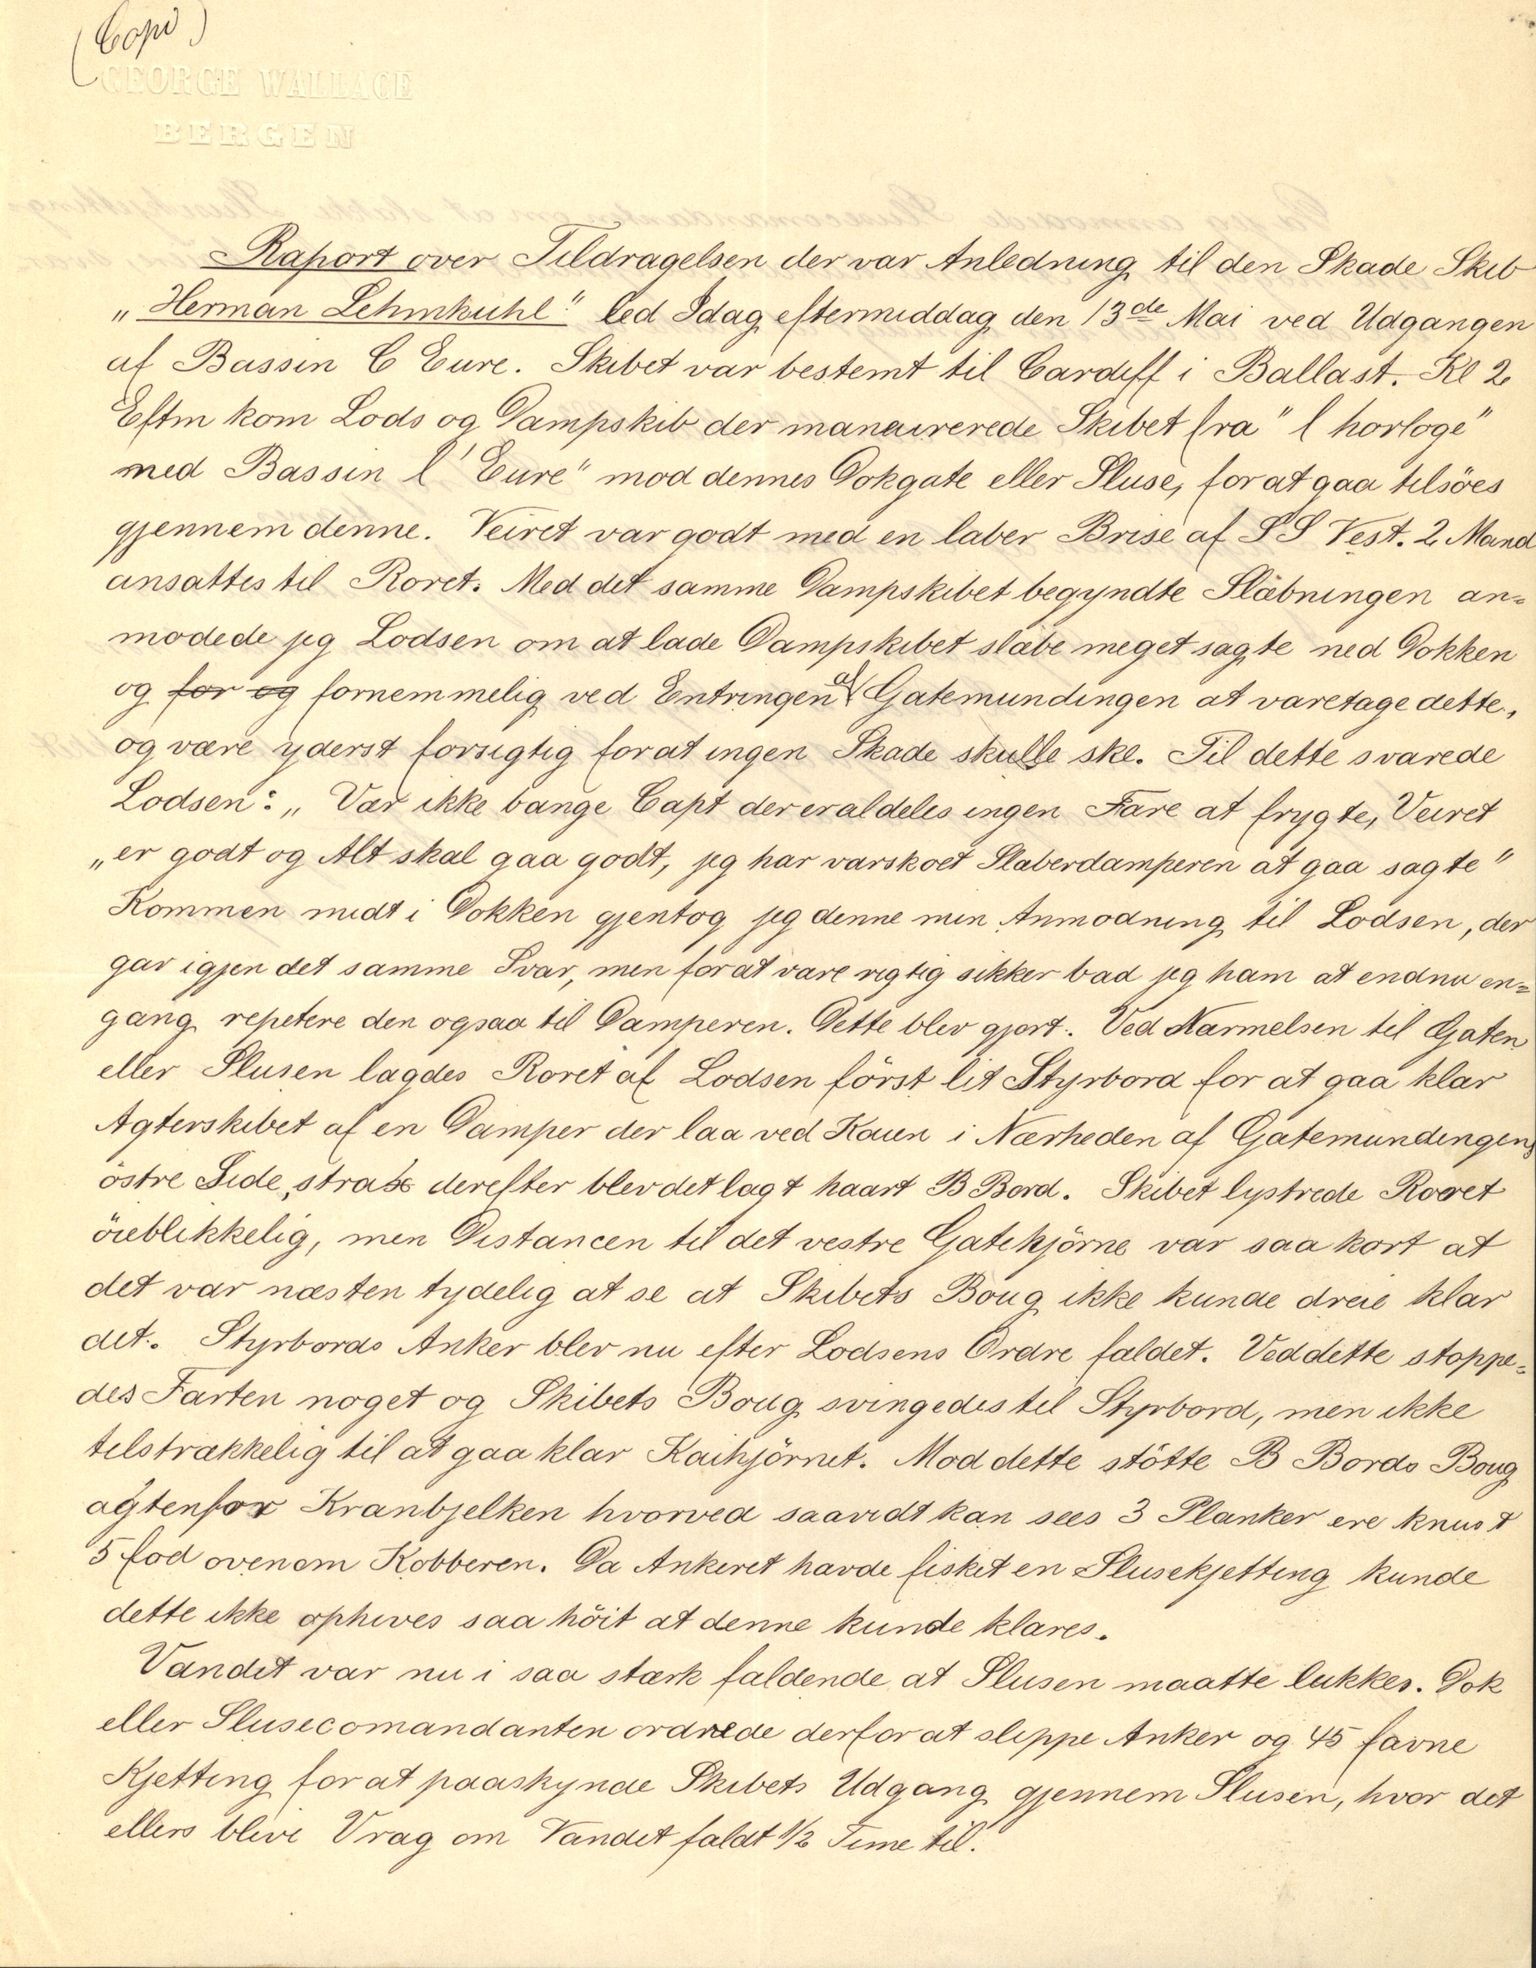 (Copi)
GEORGE WALLACE
BERGEN
Raport over Tildragelsen der var Anledning til den Skade Skib
„Herman Lehmkuhl" led Idag eftermiddag den 13de Mai ved Udgangen
af Bassin C Eure. Skibet var bestemt til Cardiff i Ballast. Kl 2
Eftm kom Lods og Dampskib der maneurerede Skibet fra "l horloge"
med Bassin l'Eure" mod dennes Dokgate eller Sluse, for at gaa tilsöes
gjennem denne. Veiret var godt med en laber Brise af SS Vest. 2 Mand
ansattes til Roret. Med det samme Dampskibet begyndte Släbningen an=
modede jeg Lodsen om at lade Dampskibet släbe meget sagte ned Dokken
og for og fornemmelig ved Entringen af Gatemundingen at varetage dette,
og være yderst forsigtig for at ingen Skade skulle ske. Til dette svarede
Lodsen: „Vær ikke bange Capt der er aldeles ingen Fare at frygte, Veiret
„er godt og Alt skal gaa godt, jeg har varskoet Slæberdamperen at gaa sagte"
Kommen midt i Dokken gjentog jeg denne min Anmodning til Lodsen, der
gav igjen det samme Svar, men for at være rigtig sikker bad jeg ham at endnu en=
gang repetere den ogsaa til Damperen. Dette blev gjort. Ved Nærmelsen til Gaten
eller Slusen lagdes Roret af Lodsen först lit Styrbord for at gaa klar
Agterskibet af en Damper der laa ved Kaien i Nærheden af Gatemundingens
östre Side, strax derefter blev det lagt haart B Bord. Skibet lystrede Roret
öieblikkelig, men Distancen til det vestre Gatehjörne var saa kort at
det var næsten tydelig at se at Skibets Boug ikke kunde dreie klar
det. Styrbords Anker blev nu efter Lodsens Ordre faldet. Ved dette stoppe=
des Farten noget og Skibets Boug svingedes til Styrbord, men ikke
tilstrækkelig til at gaa klar Kaihjörnet. Mod dette stötte B Bords Boug
agtenfor Kranbjelken hvorved saavidt kan sees 3 Planker ere knust
5 fod ovenom Kobberen. Da Ankeret havde fisket en Slusekjetting kunde
dette ikke ophives saa höit at denne kunde klares.
Vandet var nu i saa stærk faldende at Slusen maatte lukkes. Dok
eller Slusecomandanten ordrede derfor at slippe Anker og 45 favne
Kjetting for at paaskynde Skibets Udgang gjennem Slusen, hvor det
ellers blive Vrag om Vandet faldt 1/2 Time til.